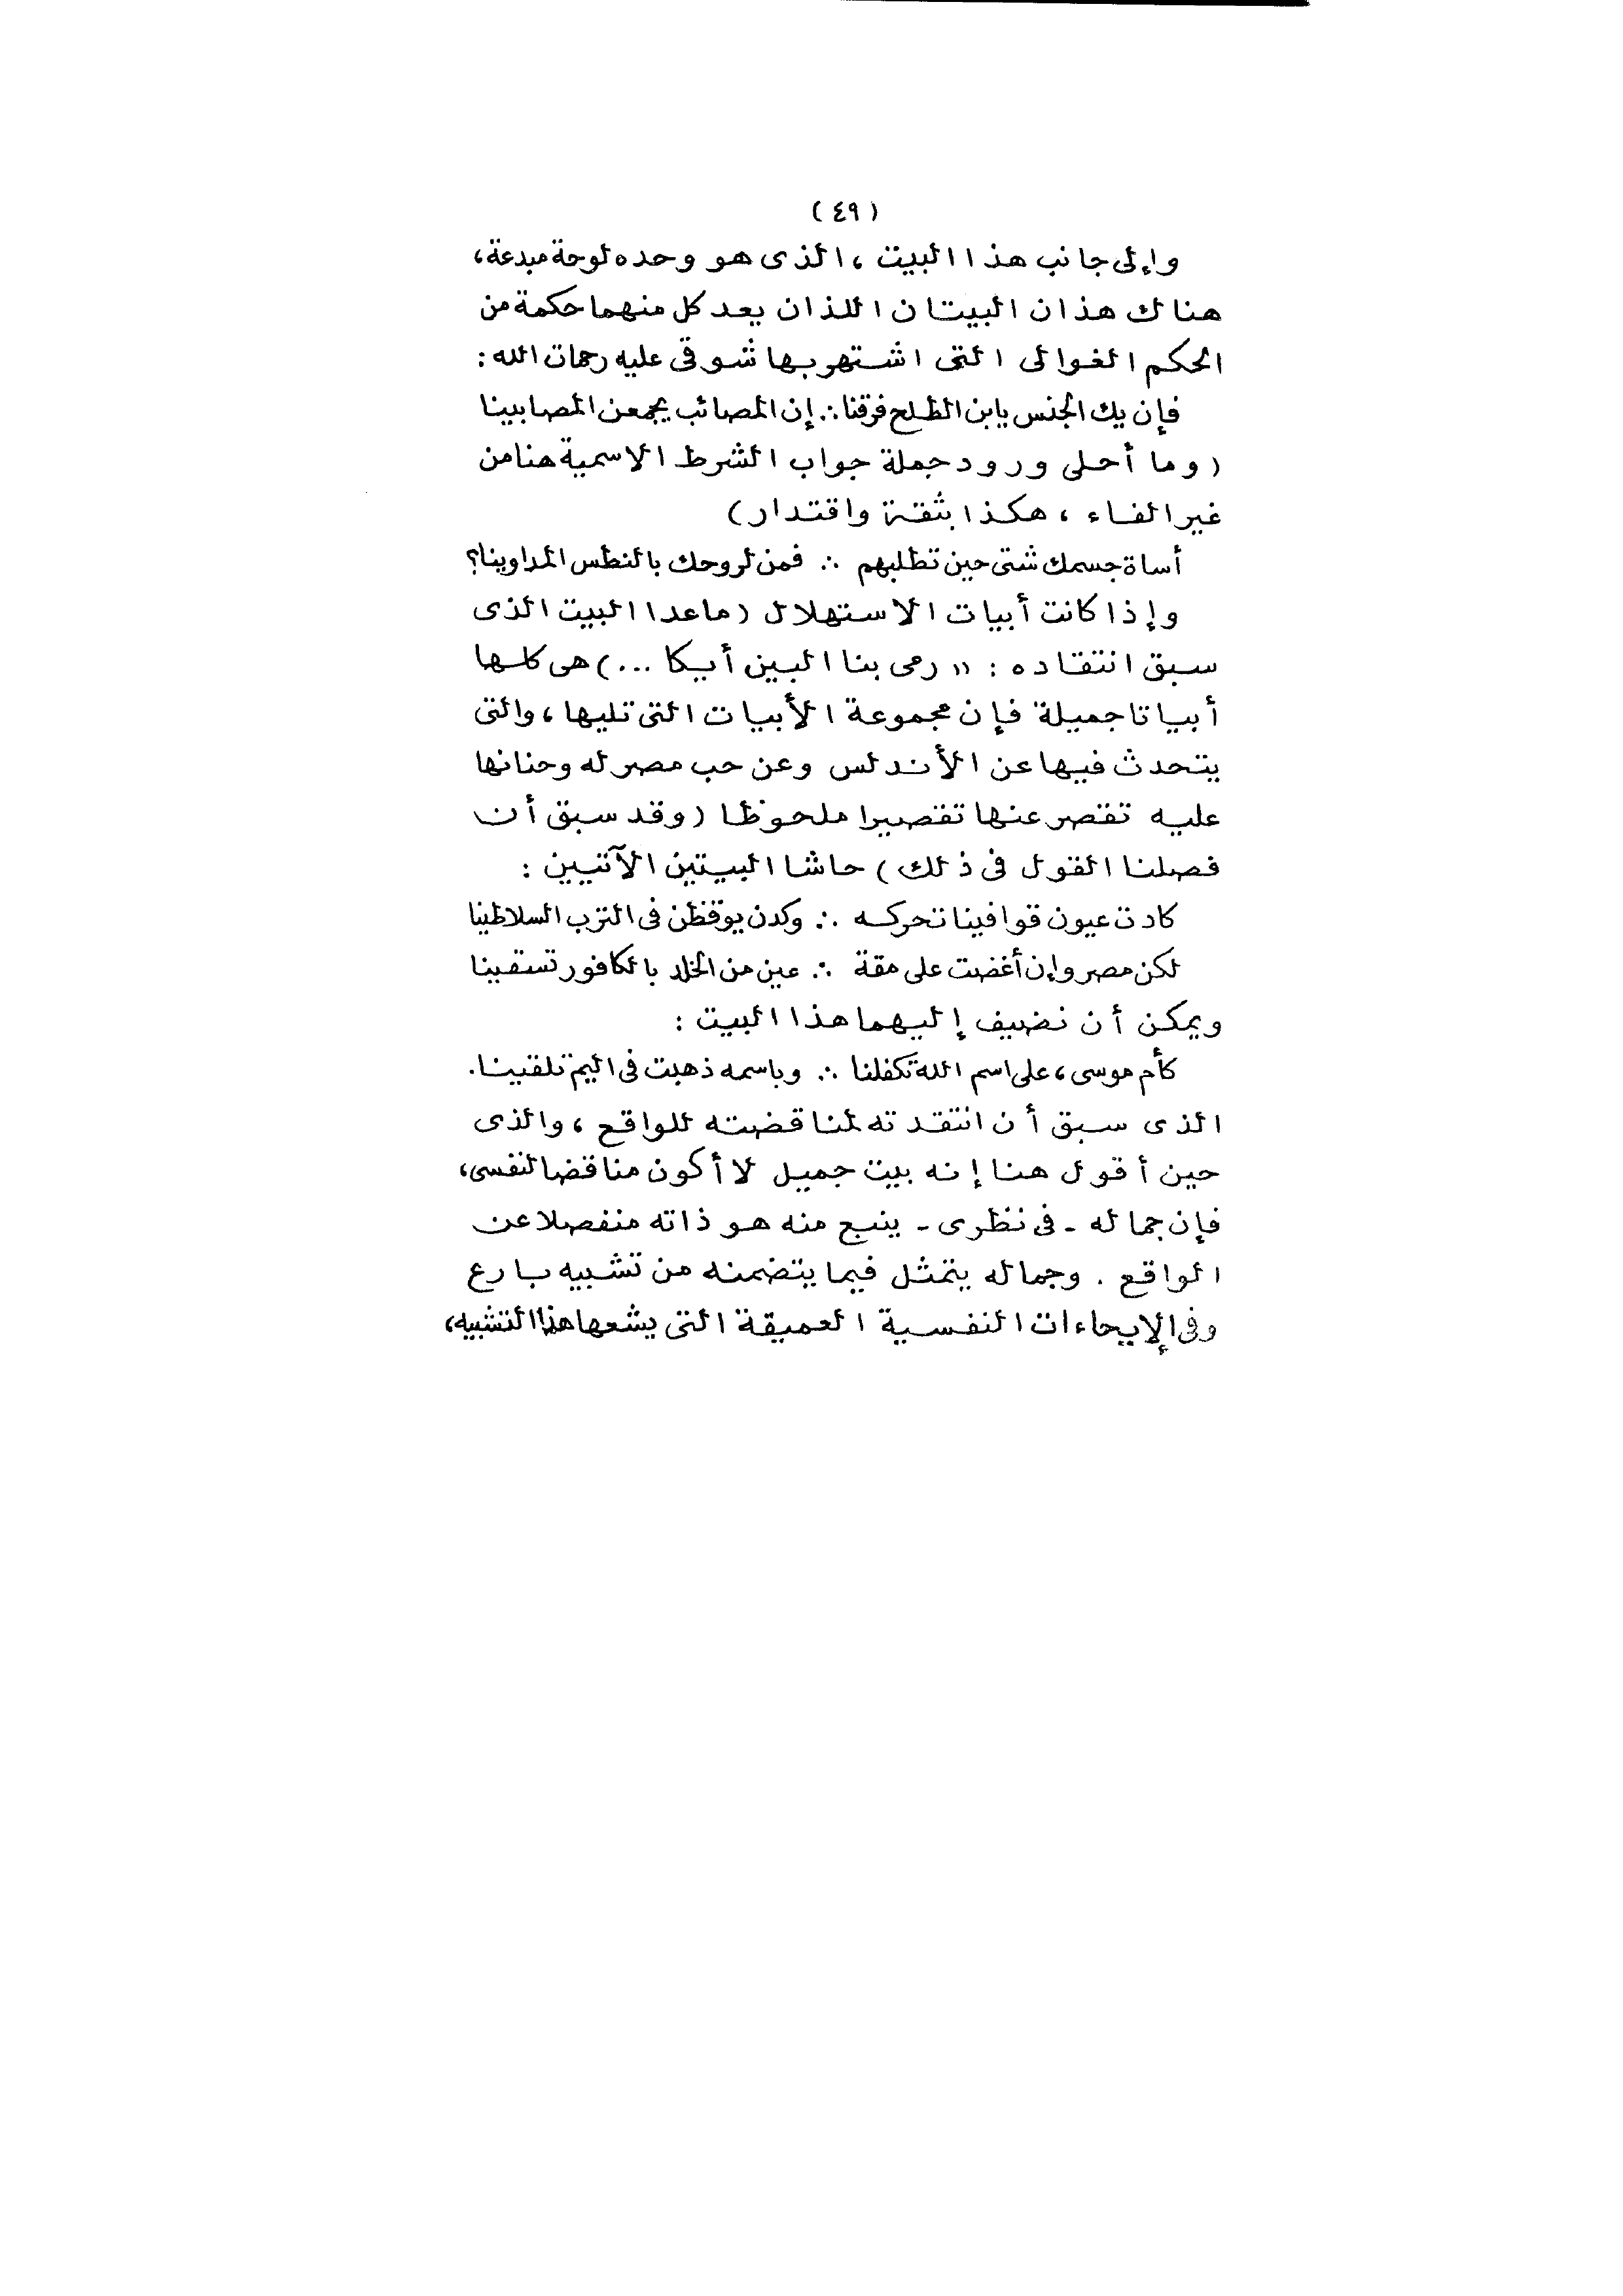 (٤٩)
وإلى جانب هذا البيت ، الذى هو وحده لوحة مبدعة،
هناك هذان البيتان اللذان يعد كل منهما حكمة من
الحكم الغوالى التى اشتهر بها شوقى عليه رحمات الله :
فإن يك الجنس يابن الطلح فرقنا ∴ إن المصائب يجمعن المصابينا
(وما أحلى ورود جملة جواب الشرط الاسمية هنا من
غير الفاء ، هكذا بثقة واقتدار)
أساة جسمك شتى حين تطلبهم ∴ فمن لروحك بالنطس المداوينا؟
وإذا كانت أبيات الاستهلال (ماعدا البيت الذى
سبق انتقاده : " رمى بنا البين أيكا ...) هى كلها
أبياتا جميلة فإن مجموعة الأبيات التى تليها ، والتى
يتحدث فيها عن الأندلس وعن حب مصر له وحنانها
عليه تقصر عنها تقصيرا ملحوظا (وقد سبق أن
فصلنا القول فى ذلك) حاشا البيتين الآتيين :
كادت عيون قوافينا تحركه ∴ وكدن يوقظن فى الترب السلاطينا
لكن مصر وإن أغضت على مقة ∴ عين من الخلد بالكافور تسقينا
ويمكن أن نضيف إليهما هذا البيت :
كأم موسى ، على اسم الله تكفلنا ∴ وباسمه ذهبت فى اليم تلقينا.
الذى سبق أن انتقدته لمناقضته للواقع ، والذى
حين أقول هنا إنه بيت جميل لا أكون مناقضا لنفسى،
فإن جماله - فى نظرى - ينبع منه هو ذاته منفصلا عن
الواقع . وجماله يتمثل فيما يتضمنه من تشبيه بارع
وفى الإيحاءات النفسية العميقة التى يشعها هذا التشبيه،